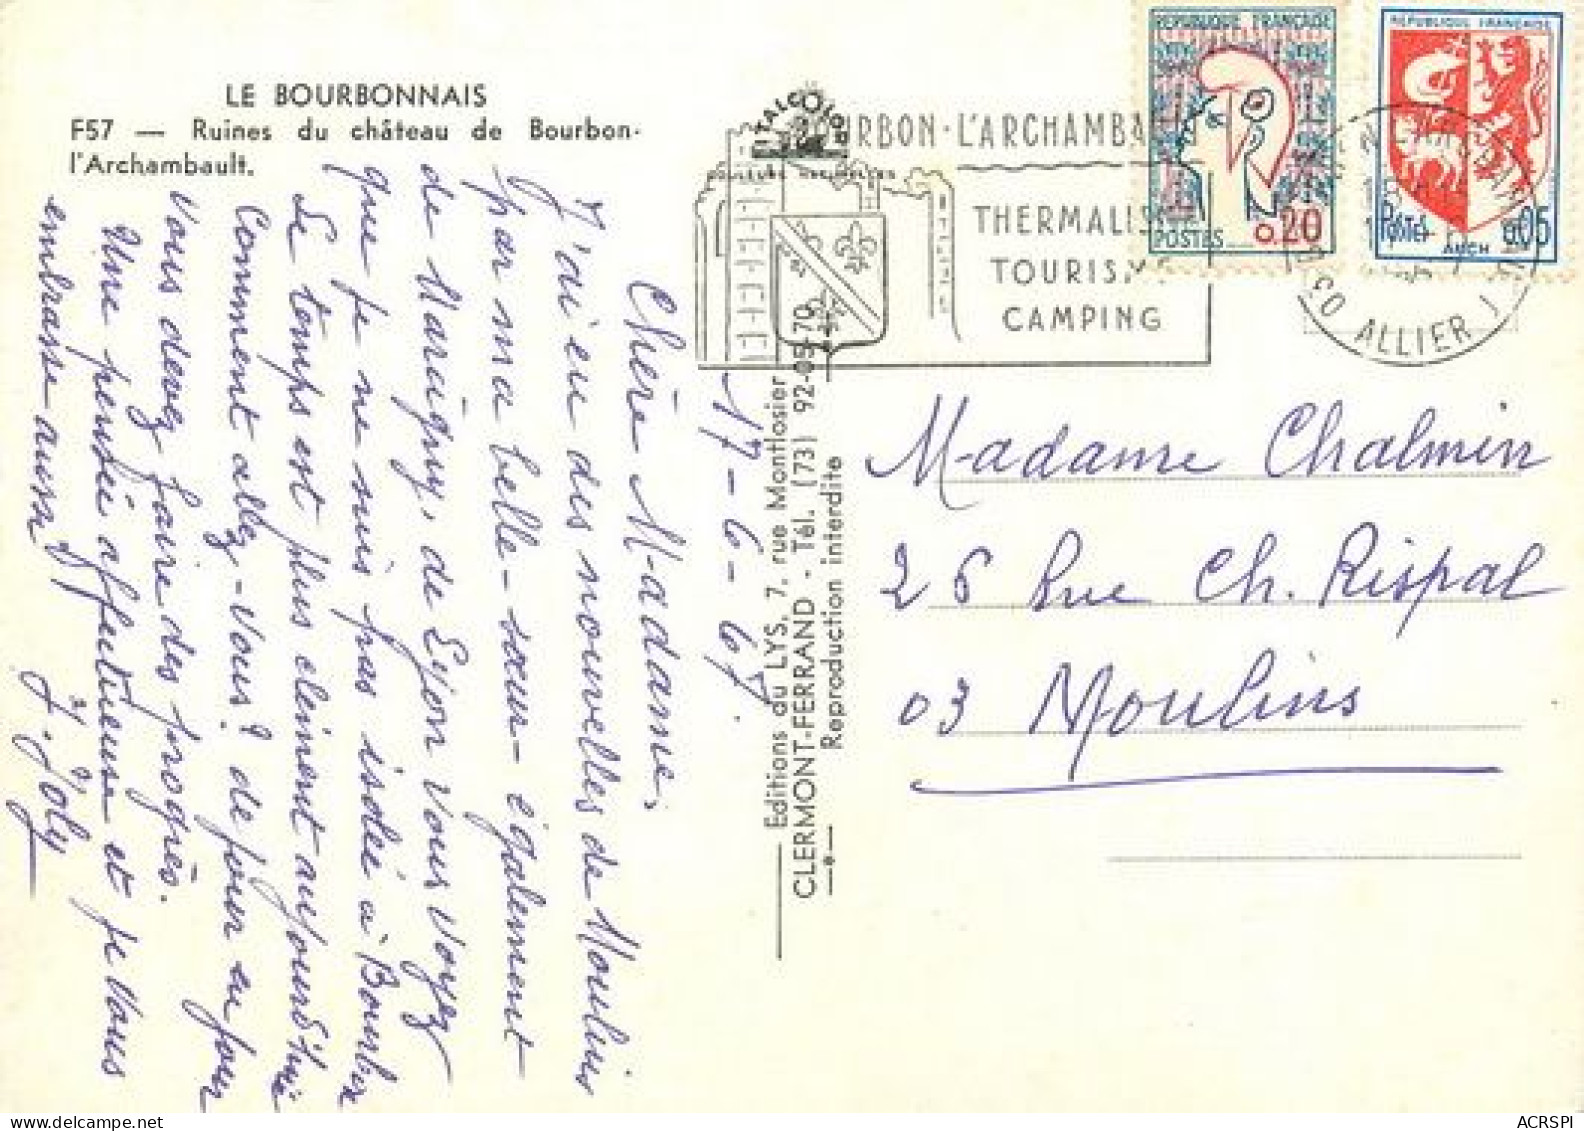 LE BOURBONNAIS
F57 — Ruines du château de Bourbon-
l'Archambault.
17-6-67.
Chère Madame,
J'ai eu des nouvelles de Moulins
par ma belle-sœur - également
de de Lyon vous voyez
que je ne suis pas isolée à Bourbon
Le temps est plus clément aujourd'hui
Comment allez-vous? de jour en jour
Vous devez faire des progrès.
Une pensée affectueuse et je vous
embrasse aussi
J. Joly
Editions du LYS, 7, rue Montlosier
CLERMONT-FERRAND - Tél. (73) 92-05-70
Reproduction interdite
ITALCOLOR
COULEURS NATURELLES
URBON-L'ARCHAMBA
THERMALIS
TOURISM
CAMPING
REPUBLIQUE FRANÇAISE
POSTES 0.20
REPUBLIQUE FRANÇAISE
POSTES 0.05
AUCH
03 ALLIER
Madame Chalmin
26 Rue Ch. Rispal
03 Moulins
ACRSPI